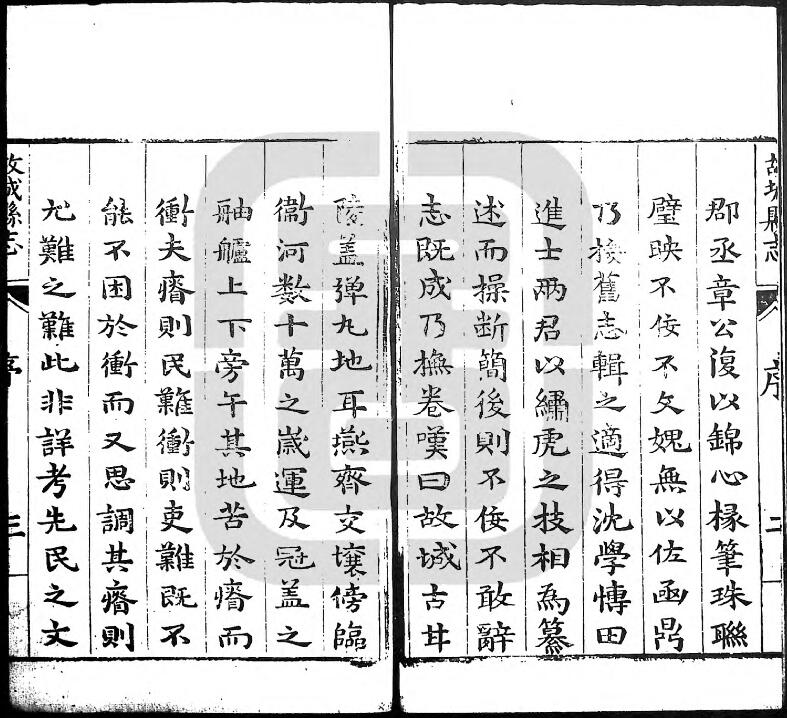 故城縣志
序
二
郡丞章公復以錦心椽筆珠聯
璧映不佞不文媿無以佐函鼎
乃舊志輯之適得沈學博田
進士兩君以繡虎之技相為纂
述而操斷簡後則不佞不敢辭
志既成乃撫卷嘆曰故城古甘
陵盖彈丸地耳燕齊交壤傍臨
衞河數十萬之歲運及冠盖之
舳艫上下旁午其地苦於瘠而
衝夫瘠則民難衝則吏難既不
能不困於衝而又思調其瘠則
尤難之難此非詳考先民之文
故城縣志
序
三